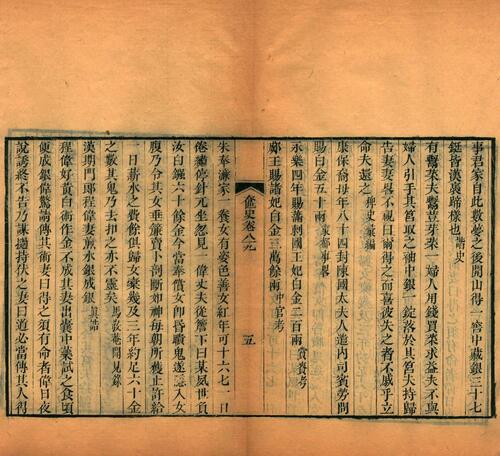 事君家自此數夢之後開山得一窖中藏銀三十七
鋌皆漢裹蹄樣也諧史
有鬻菜夫鬻荳芽菜一婦人用錢買菜求益夫不與
婦人引手其筥取之袖中銀一錠落於其筥夫持歸
告妻妻畧不視曰爾得之而喜彼失之者不戚乎立
命夫還之稗史彙編
康保裔母年八十四封陳國太夫人遣內司賓勞問
賜白金五十兩東都事畧
永樂四年賜藩剌國王妃白金二百兩賞賚考
鄭王賜諸妃白金三萬餘兩中官考
奩史卷八九
五
朱奉濂家一養女有姿色善女紅年可十六七一日
倦繡停針兀坐忽見一偉丈夫從簷下曰某夙世負
汝白鏹六十餘金今當奉償女卽昏聵鬼遂憑入女
腹乃令其女垂簾賣卜剖斷如神每朝所獲止許給
一日薪水之費餘俱歸女橐幾及三年約足六十金
之數其鬼乃去卯之亦不靈矣馬政菴聞見錄
漢期門郎程偉妻煎水銀成銀眞誥
程偉好黃白術作金不成其妻出囊中藥試之食頃
便成銀偉驚請傳其術妻曰得之須有命者偉日夜
說誘終不告乃謀撾持伏之妻曰道必當傳其人得